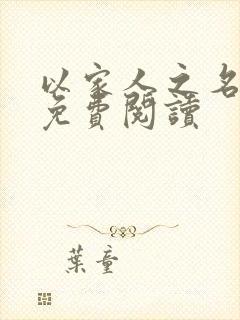 以家人之名
免費閱讀
葉童